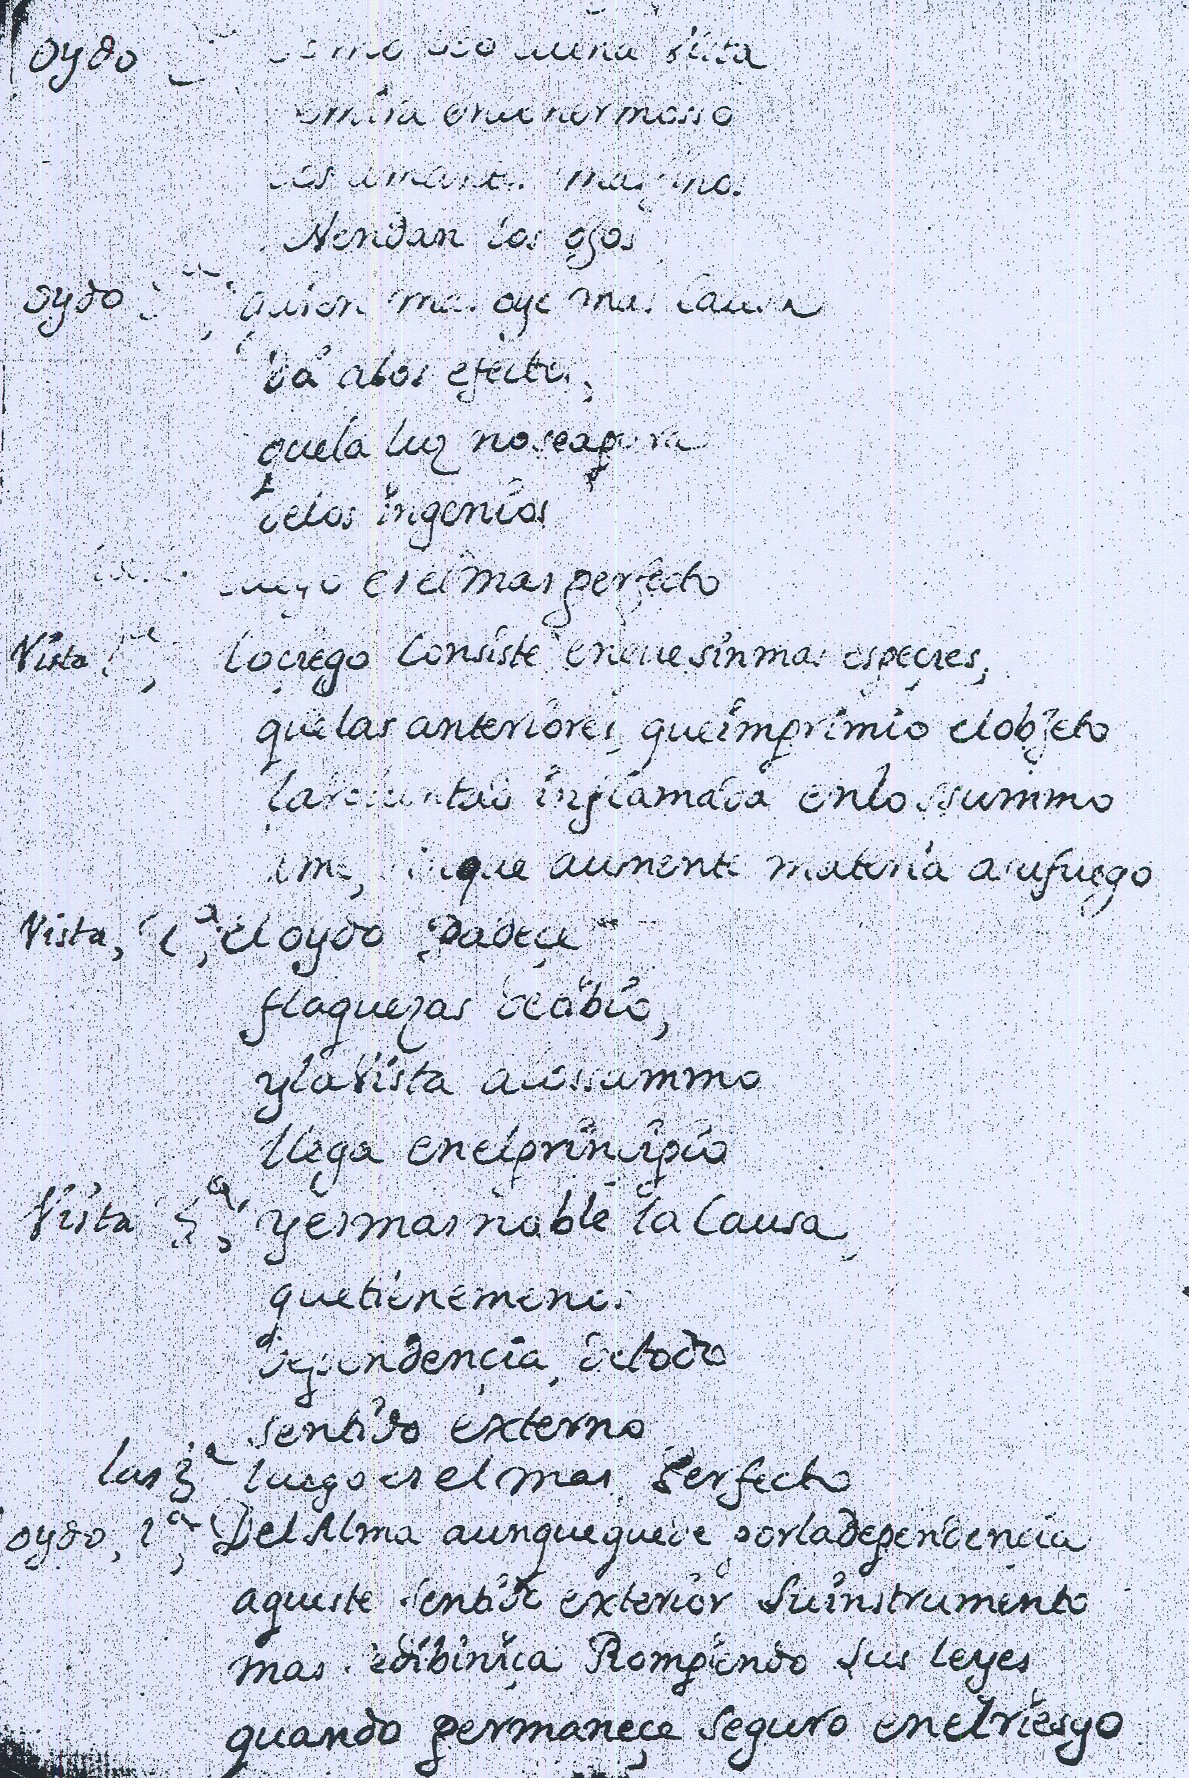 oydo
hermosso
Vendan los ojos
oydo quien mas oye mas causa
da alos efectos,
quela luz noseapura
delos ingenios
luego es el mas perfecto
Vista lociego Consiste enque sinmas espeçies,
quelas anteriores, queimprimio elobjeto
lavoluntad inflamada enlo ssummo
ama, sinque aumente materia asufuego
Vista, 2ª, el oydo Padeçe
flaquezas delabio,
y la Vista alossummo
llega enelprinçipio
Vista 3ª, y es mas noble la Causa,
quetiene menos
dependencia, detodo
sentido externo
las 3ª luego es el mas Perfecto
oydo, 1ª, Del Alma aunquequede porladependencia
aqueste sentido exterior Suinstrumento
mas dibiniça Rompiendo sus leyes
quando permaneçe seguro enelriesgo